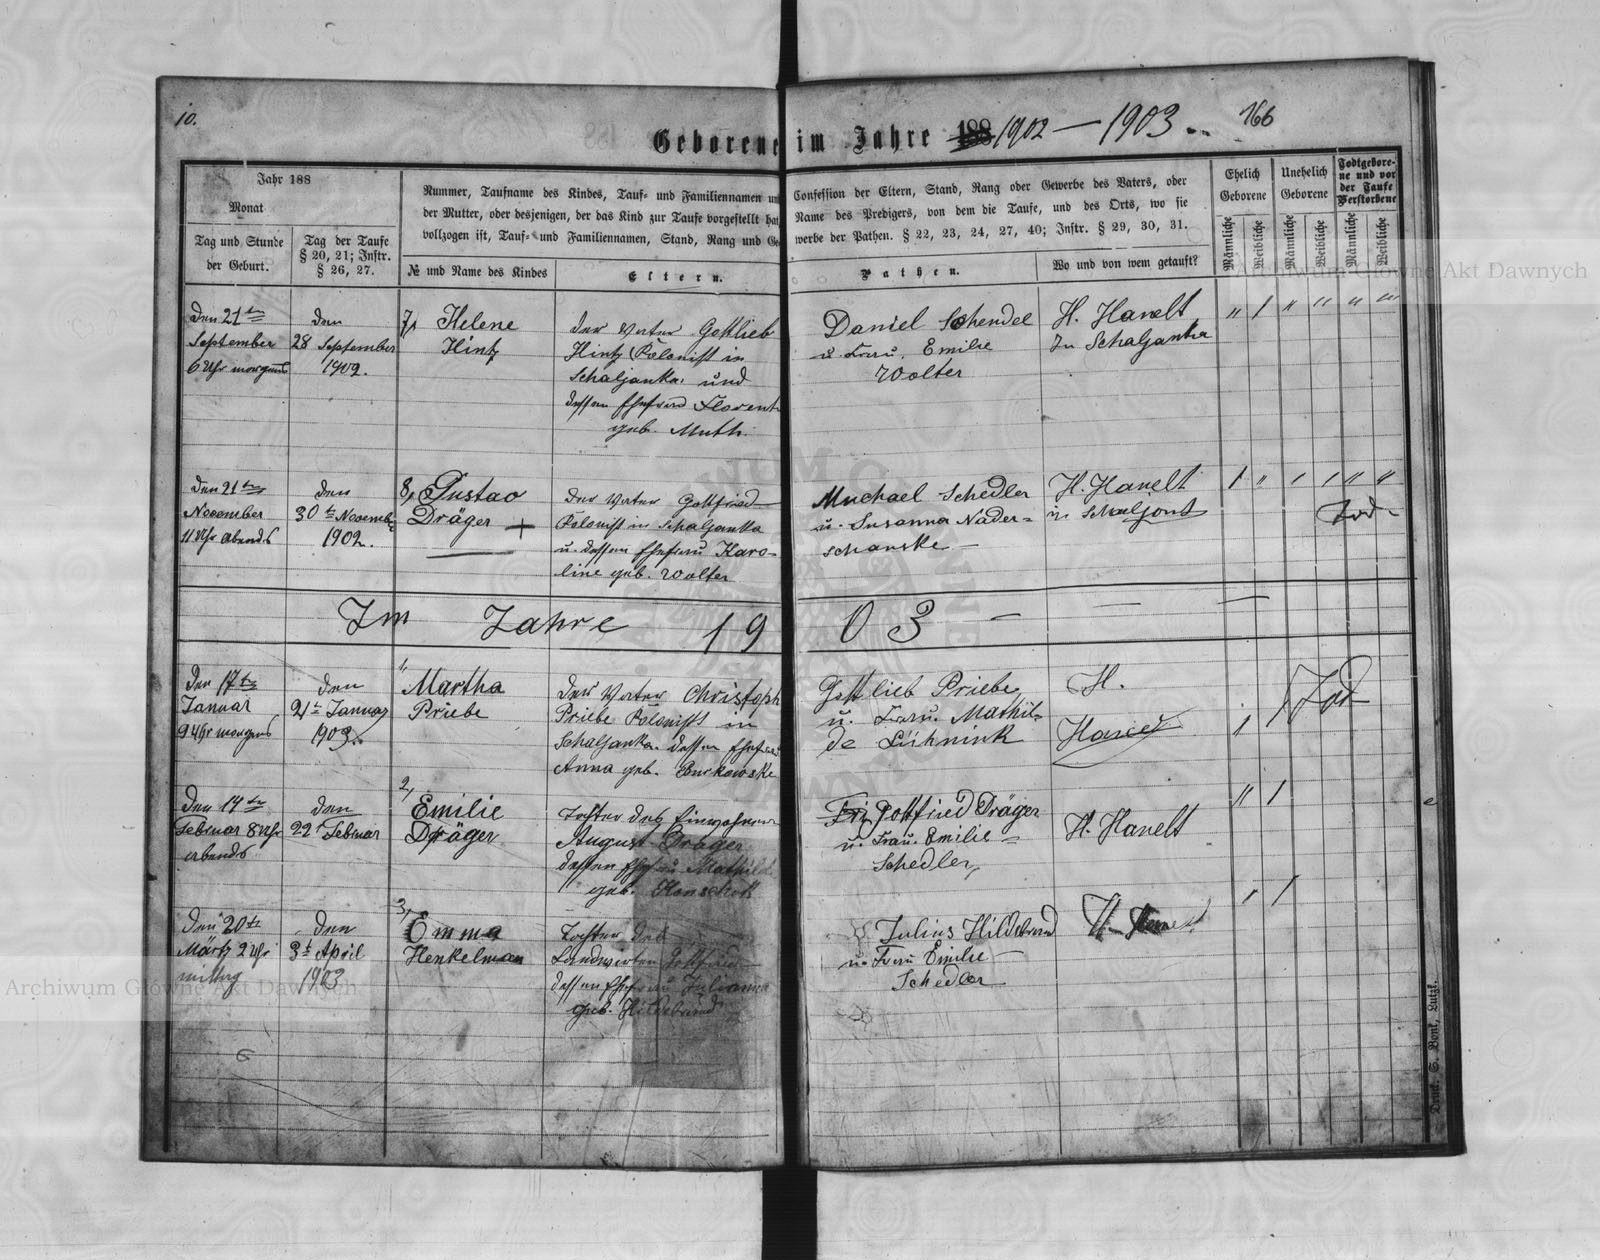 10.
166
Geborene im Jahre 188 1902 — 1903.
Jahr 188
Monat
Tag und Stunde
der Geburt.
Tag der Taufe
§ 20, 21; Instr.
§ 26, 27.
Nummer, Taufname des Kindes, Tauf- und Familiennamen un
der Mutter, oder desjenigen, der das Kind zur Taufe vorgestellt hat
vollzogen ist, Tauf- und Familiennamen, Stand, Rang und Ge
№ und Name des Kindes
Eltern.
Confession der Eltern, Stand, Rang oder Gewerbe des Vaters, oder
Name des Predigers, von dem die Taufe, und des Orts, wo sie
werbe der Pathen. § 22, 23, 24, 27, 40; Instr. § 29, 30, 31.
Pathen.
Wo und von wem getauft?
Ehelich
Geborene
Unehelich
Geborene
Todtgebore-
ne und vor
der Taufe
Verstorbene
Männliche
Weibliche
Männliche
Weibliche
Männliche
Weibliche
Den 21ten
September
6 Uhr morgens
den
28 September
1902.
7, Helene
Hintz
Der Vater Gottlieb
Hintz Kolonist in
Schaljanka und
dessen Ehefrau Florent
geb. Muth.
Daniel Schendel
u. Frau. Emilie
Wolter
H. Hanelt
In Schaljanka
Den 21ten
November
11 Uhr abends
den
30te Novembe
1902.
8, Gustav
Dräger +
Der Vater Gottfried
Kolonist in Schaljanka
u. dessen Ehefrau Karo-
line geb. Wolter
Muchael Schedler
u. Susanna Nader-
schanske
H. Hanelt
in Schaljont
Tod
Im Jahre 1903
Den 17te
Januar
9 Uhr morgens
den
21te Januar
1903.
1, Martha
Priebe
Der Vater Christoph
Priebe Kolonist in
Schaljanka. dessen Ehefrau
Anna geb. Burkowske
Gottlieb Priebe
u. Frau. Mathil-
de Lühnink
H.
Tod
Den 14te
Februar 8 Uhr
abends
den
22 Februar
2, Emilie
Dräger
Tochter des Einwohners
August Dräger
dessen Ehefrau Mathilde
geb.
Gottfried Dräger
u. Frau. Emilie
Schedler
H. Hanelt
Den 20te
März 2 Uhr
mittag
den
3t April
1903
3, Emma
Henkelman
Tochter des
Landwirten Gottfried
dessen Ehefrau Julianna
geb. Hildebrand
Julius Hildebrand
u. Frau Emilie
Schedler
H.
Druck. S. Bonk, Lutzk.
Archiwum Główne Akt Dawnych
Archiwum Główne Akt Dawnych